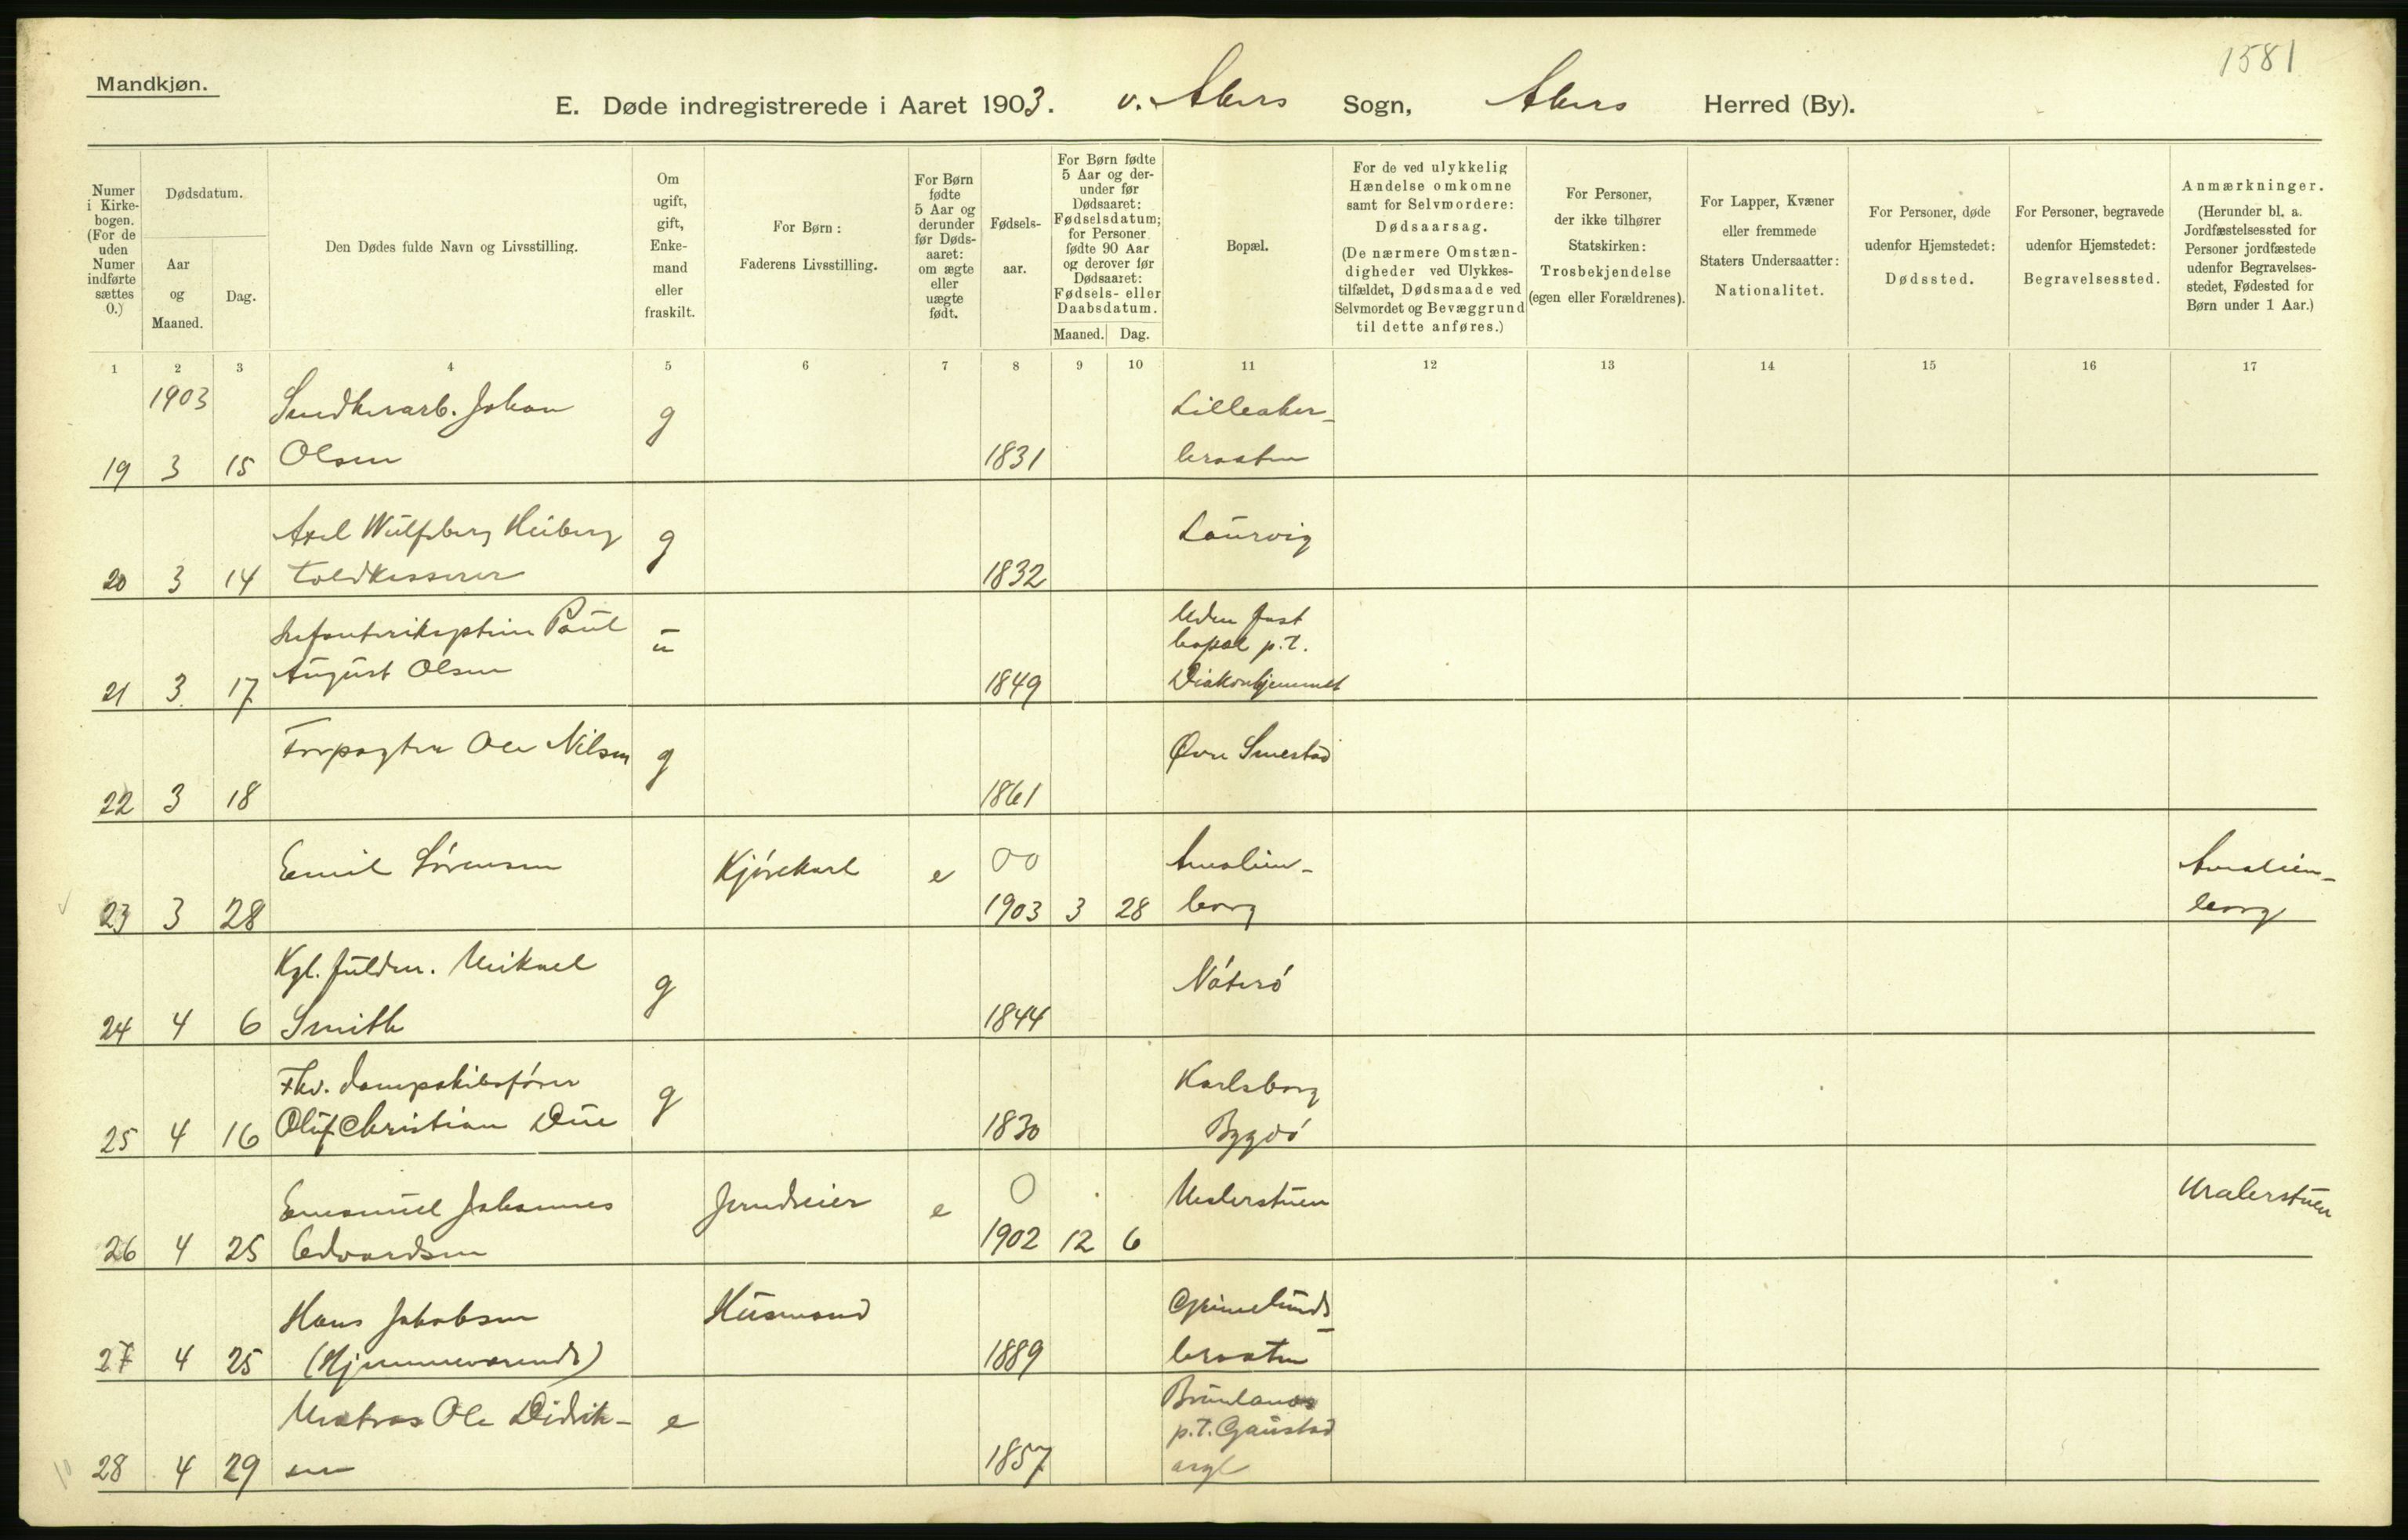 1581
Mandkjøn.
E. Døde indregistrerede i Aaret 1903. v. Akers Sogn, Akers Herred (By).
Numer i Kirkebogen. (For de uden Numer indførte sættes 0.)
Dødsdatum.
Aar og Maaned.
Dag.
Den Dødes fulde Navn og Livsstilling.
Om ugift, gift, Enkemand eller fraskilt.
For Børn: Faderens Livsstilling.
For Børn fødte 5 Aar og derunder før Dødsaaret: om ægte eller uægte født.
Fødselsaar.
For Børn fødte 5 Aar og derunder før Dødsaaret: Fødselsdatum; for Personer fødte 90 Aar og derover før Dødsaaret: Fødsels- eller Daabsdatum.
Maaned. Dag.
Bopæl.
For de ved ulykkelig Hændelse omkomne samt for Selvmordere: Dødsaarsag. (De nærmere Omstændigheder ved Ulykkestilfældet, Dødsmaade ved Selvmordet og Bevæggrund til dette anføres.)
For Personer, der ikke tilhører Statskirken: Trosbekjendelse (egen eller Forældrenes).
For Lapper, Kvæner eller fremmede Staters Undersaatter: Nationalitet.
For Personer, døde udenfor Hjemstedet: Dødssted.
For Personer, begravede udenfor Hjemstedet: Begravelsessted.
Anmærkninger. (Herunder bl. a. Jordfæstelsessted for Personer jordfæstede udenfor Begravelsesstedet, Fødested for Børn under 1 Aar.)
1 2 3 4 5 6 7 8 9 10 11 12 13 14 15 16 17
1903 Johan g Lilleaker-
19 3 15 Olsen 1831 braaten
Axel Wulfsberg Heiberg g Laurvig
20 3 14 Toldkasserer 1832
Infanterikaptein Paul u Uden fast
August Olsen bopæl p.t.
21 3 17 1849 Diakonhjemmet
Forpagter Ole Nilsen g Øvre Smestad
22 3 18 1861
Emil Sørensen Kjørekarl e 00 Amalien- Amalien-
23 3 28 1903 3 28 borg borg
Kgl. fuldm. Mikael g Nøterø
24 4 6 Smith 1844
Fhv. dampskibsfører g Karlsborg
25 4 16 Oluf Christian Due 1830 Bygdø
Emanuel Johannes Jordeier e 0
26 4 25 Edvardsen 1902 12 6
Hans Jakobsen Husmand Grimelunds-
27 4 25 (Hjemmeværende) 1889 braaten
Matros Ole Didrik- e Brunlanes
p.t. Gaustad
28 4 29 sen 1857 asyl